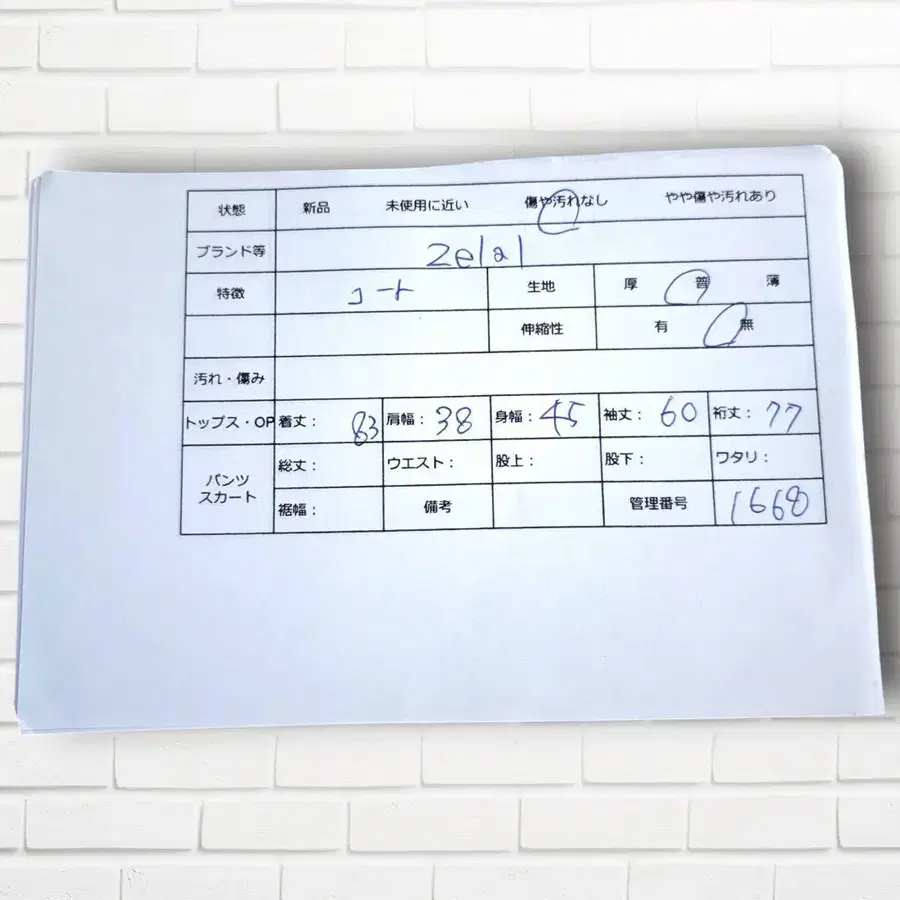 状態 新品 未使用に近い 傷や汚れなし やや傷や汚れあり
ブランド等 Zelal
特徴 コート 生地 厚 普 薄
伸縮性 有 無
汚れ・傷み
トップス・OP 着丈： 83 肩幅： 38 身幅： 45 袖丈： 60 裄丈： 77
パンツ スカート 総丈： ウエスト： 股上： 股下： ワタリ：
裾幅： 備考 管理番号 1668